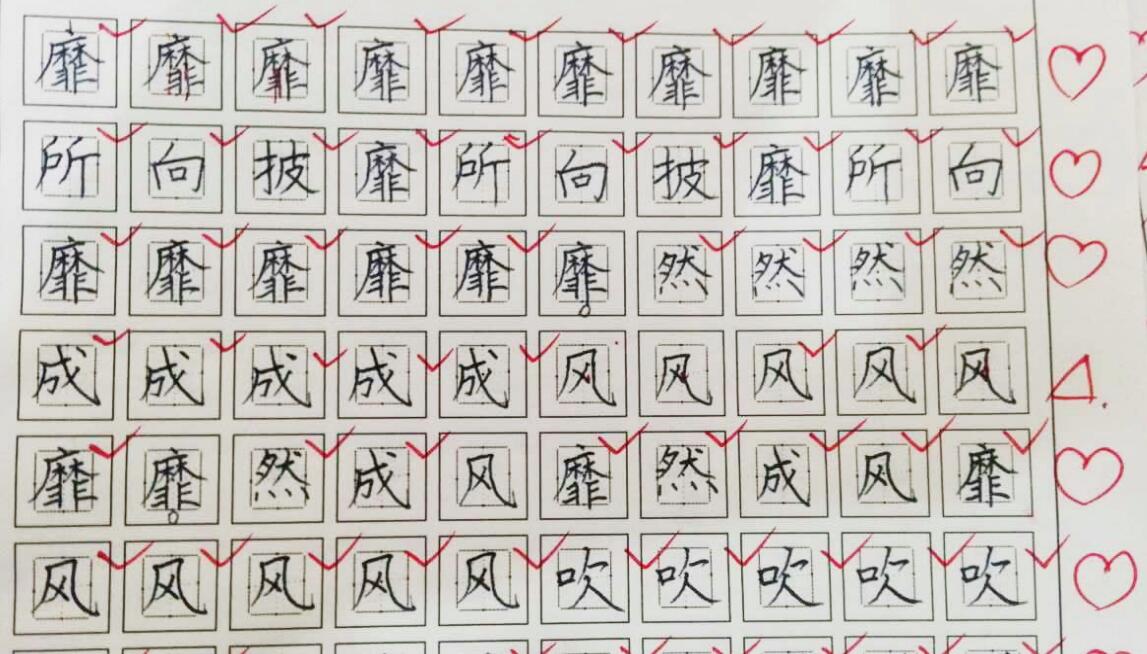 靡靡靡靡靡靡靡靡靡靡
所向披靡所向披靡所向
靡靡靡靡靡靡然然然然
成成成成成风风风风风
靡靡然成风靡然成风靡
风风风风风吹吹吹吹吹